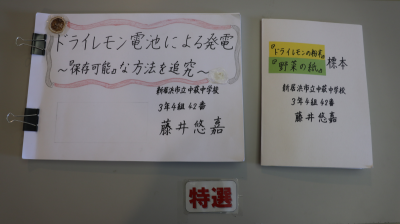 ドライレモン電池による発電
~『保存可能』な方法を追究~
新居浜市立中萩中学校
3年4組42番
藤井悠嘉
『ドライレモンの粉末』
『野菜の紙』
標本
新居浜市立中萩中学校
3年4組42番
藤井悠嘉
特選